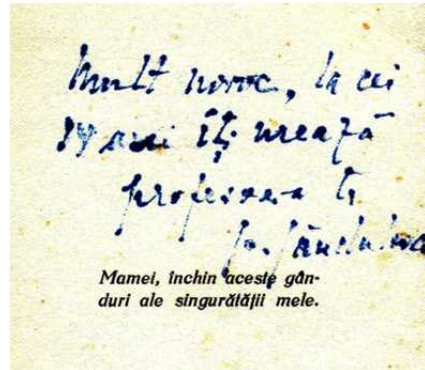 Mult noroc, la cei
14 ani îți urează
profesoara ta
Mamei, închin aceste gân-
duri ale singurătății mele.